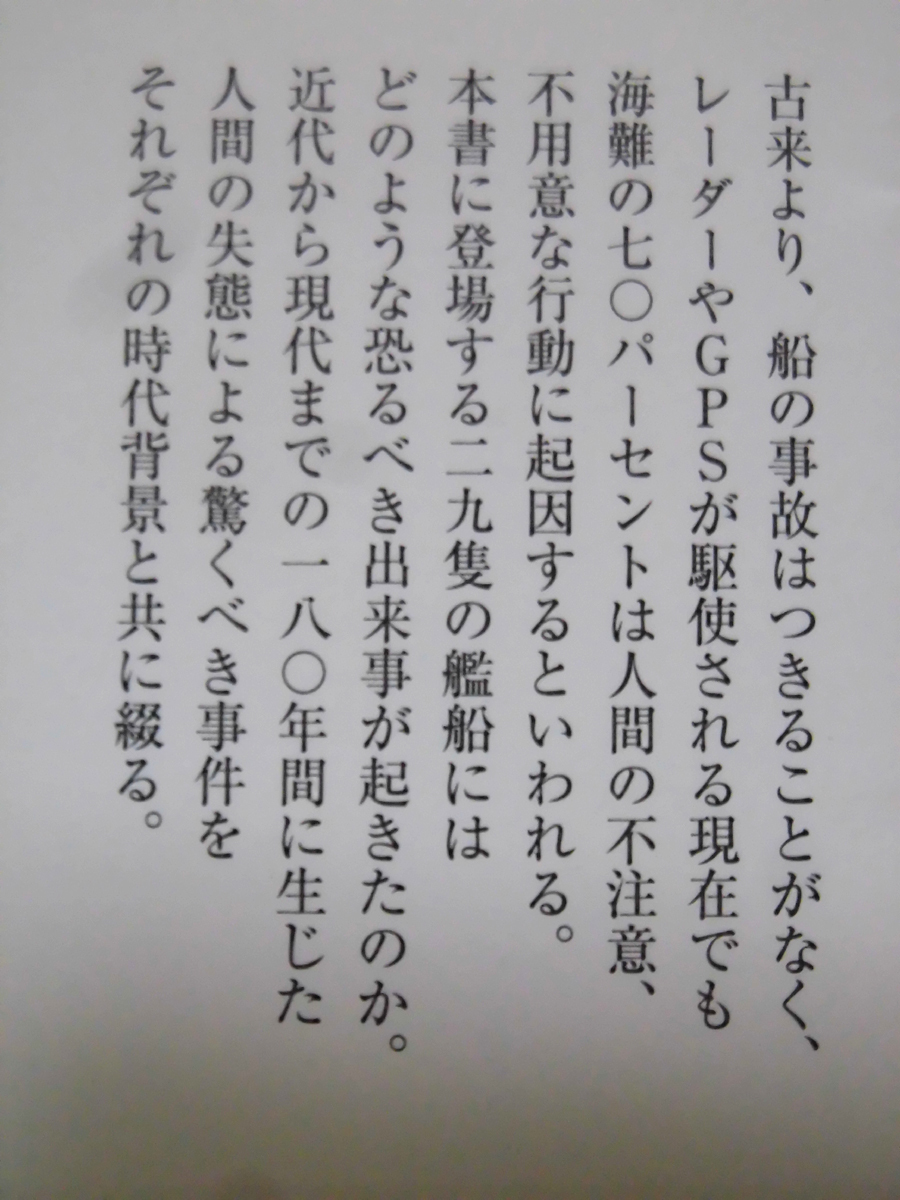 古来より、船の事故はつきることがなく、
レーダーやGPSが駆使される現在でも
海難の七〇パーセントは人間の不注意、
不用意な行動に起因するといわれる。
本書に登場する二九隻の艦船には
どのような恐るべき出来事が起きたのか。
近代から現代までの一八〇年間に生じた
人間の失態による驚くべき事件を
それぞれの時代背景と共に綴る。